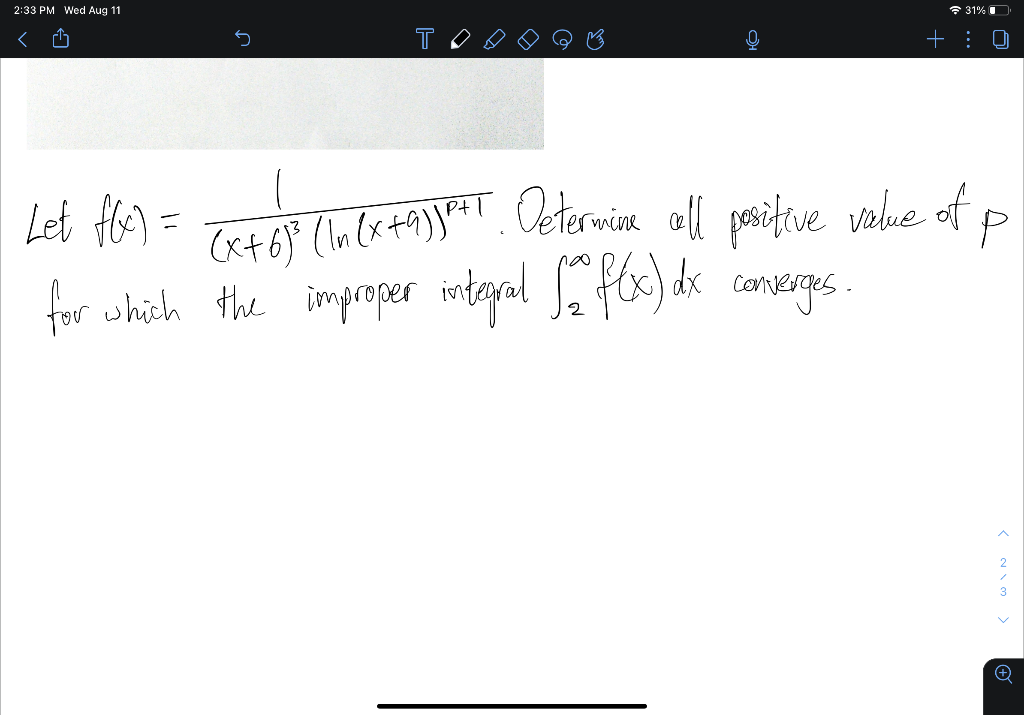 2:33 PM Wed Aug 11
31%
T
Let f(x) = 1 / (x+6)³ (ln(x+9))^(p+1) . Determine all positive value of p
for which the improper integral ∫₂^∞ f(x) dx converges.
2
/
3